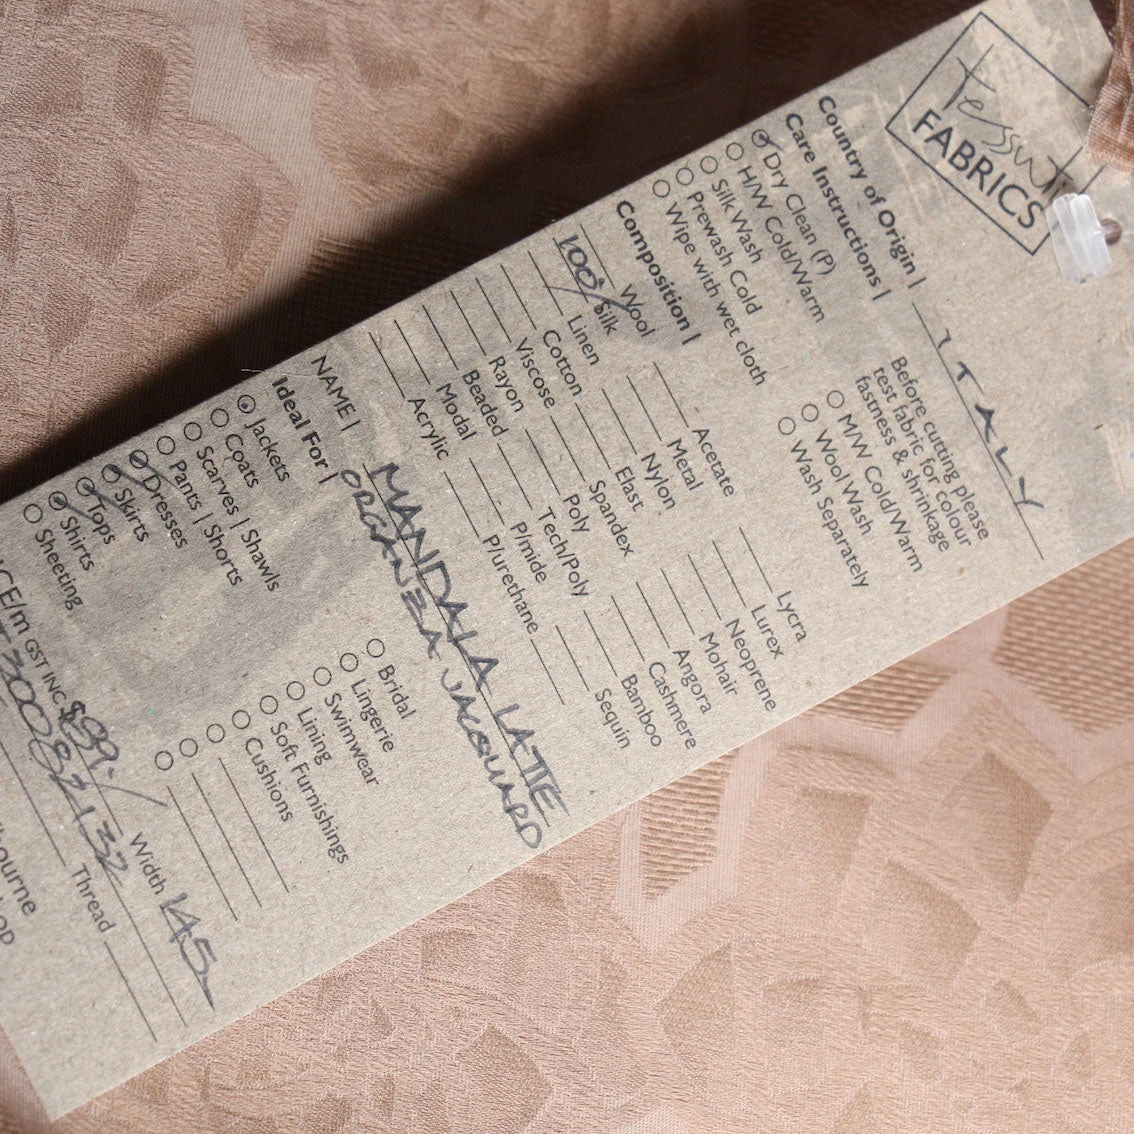 Tessuti
FABRICS
Country of Origin | ITALY
Care Instructions |
Dry Clean (P)
H/W Cold/Warm
Silk Wash
Prewash Cold
Wipe with wet cloth
Before cutting please
test fabric for colour
fastness & shrinkage
M/W Cold/Warm
Wool Wash
Wash Separately
Composition |
Wool
100% Silk
Linen
Cotton
Viscose
Rayon
Beaded
Modal
Acrylic
Acetate
Metal
Nylon
Elast
Spandex
Poly
Tech/Poly
P/mide
P/urethane
Lycra
Lurex
Neoprene
Mohair
Angora
Cashmere
Bamboo
Sequin
NAME | MANDALA LATTE
ORGANZA JACQUARD
Ideal For |
Jackets
Coats
Scarves | Shawls
Pants | Shorts
Dresses
Skirts
Tops
Shirts
Sheeting
Bridal
Lingerie
Swimwear
Lining
Soft Furnishings
Cushions
ICE/m GST INC $99.- Width 145
30082132 Thread
ourne